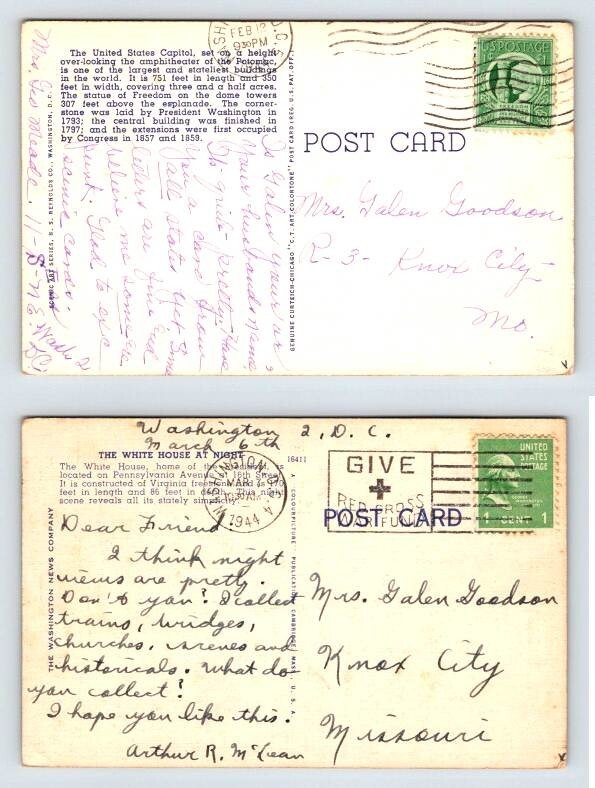 The United States Capitol, set on a height
over-looking the amphitheater of the Potomac,
is one of the largest and stateliest buildings
in the world. It is 751 feet in length and 350
feet in width, covering three and a half acres.
The statue of Freedom on the dome towers
307 feet above the esplanade. The corner-
stone was laid by President Washington in
1793; the central building was finished in
1797; and the extensions were first occupied
by Congress in 1857 and 1859.
SCENIC ART SERIES, B. S. REYNOLDS CO., WASHINGTON, D. C.
GENUINE CURTEICH-CHICAGO "C.T. ART-COLORTONE" POST CARD (REG. U.S. PAT. OFF.)
FEB 12
930PM
U.S. POSTAGE
FREEDOM
POST CARD
Is Galen your or
your husbands name
Oh girls pretty. Have
you a card from
all states yet. Some
letters are fine and
believe me some are
punk. Glad to exc
scenic cards.
Mrs. Meade
Mrs. Galen Goodson
R-3- Knox City
Mo.
Washington 2, D. C.
March 6th
THE WHITE HOUSE AT NIGHT
The White House, home of the President, is
located on Pennsylvania Avenue at 16th Street.
It is constructed of Virginia freestone and is 170
feet in length and 86 feet in depth. This night
scene reveals all its stately simplicity.
THE WASHINGTON NEWS COMPANY
16411
COLOURPICTURE PUBLICATION CAMBRIDGE, MASS. U. S. A.
WASHINGTON, D.C.
MAR 7
1944
GIVE
RED CROSS
WAR FUND
UNITED
STATES
POSTAGE
1 CENT 1
POST CARD
Dear Friend
I think night
views are pretty.
Don't you? I collect
trains, bridges,
churches, scenes and
historicals. What do
you collect?
I hope you like this.
Arthur R. McLean
Mrs. Galen Goodson
Knox City
Missouri